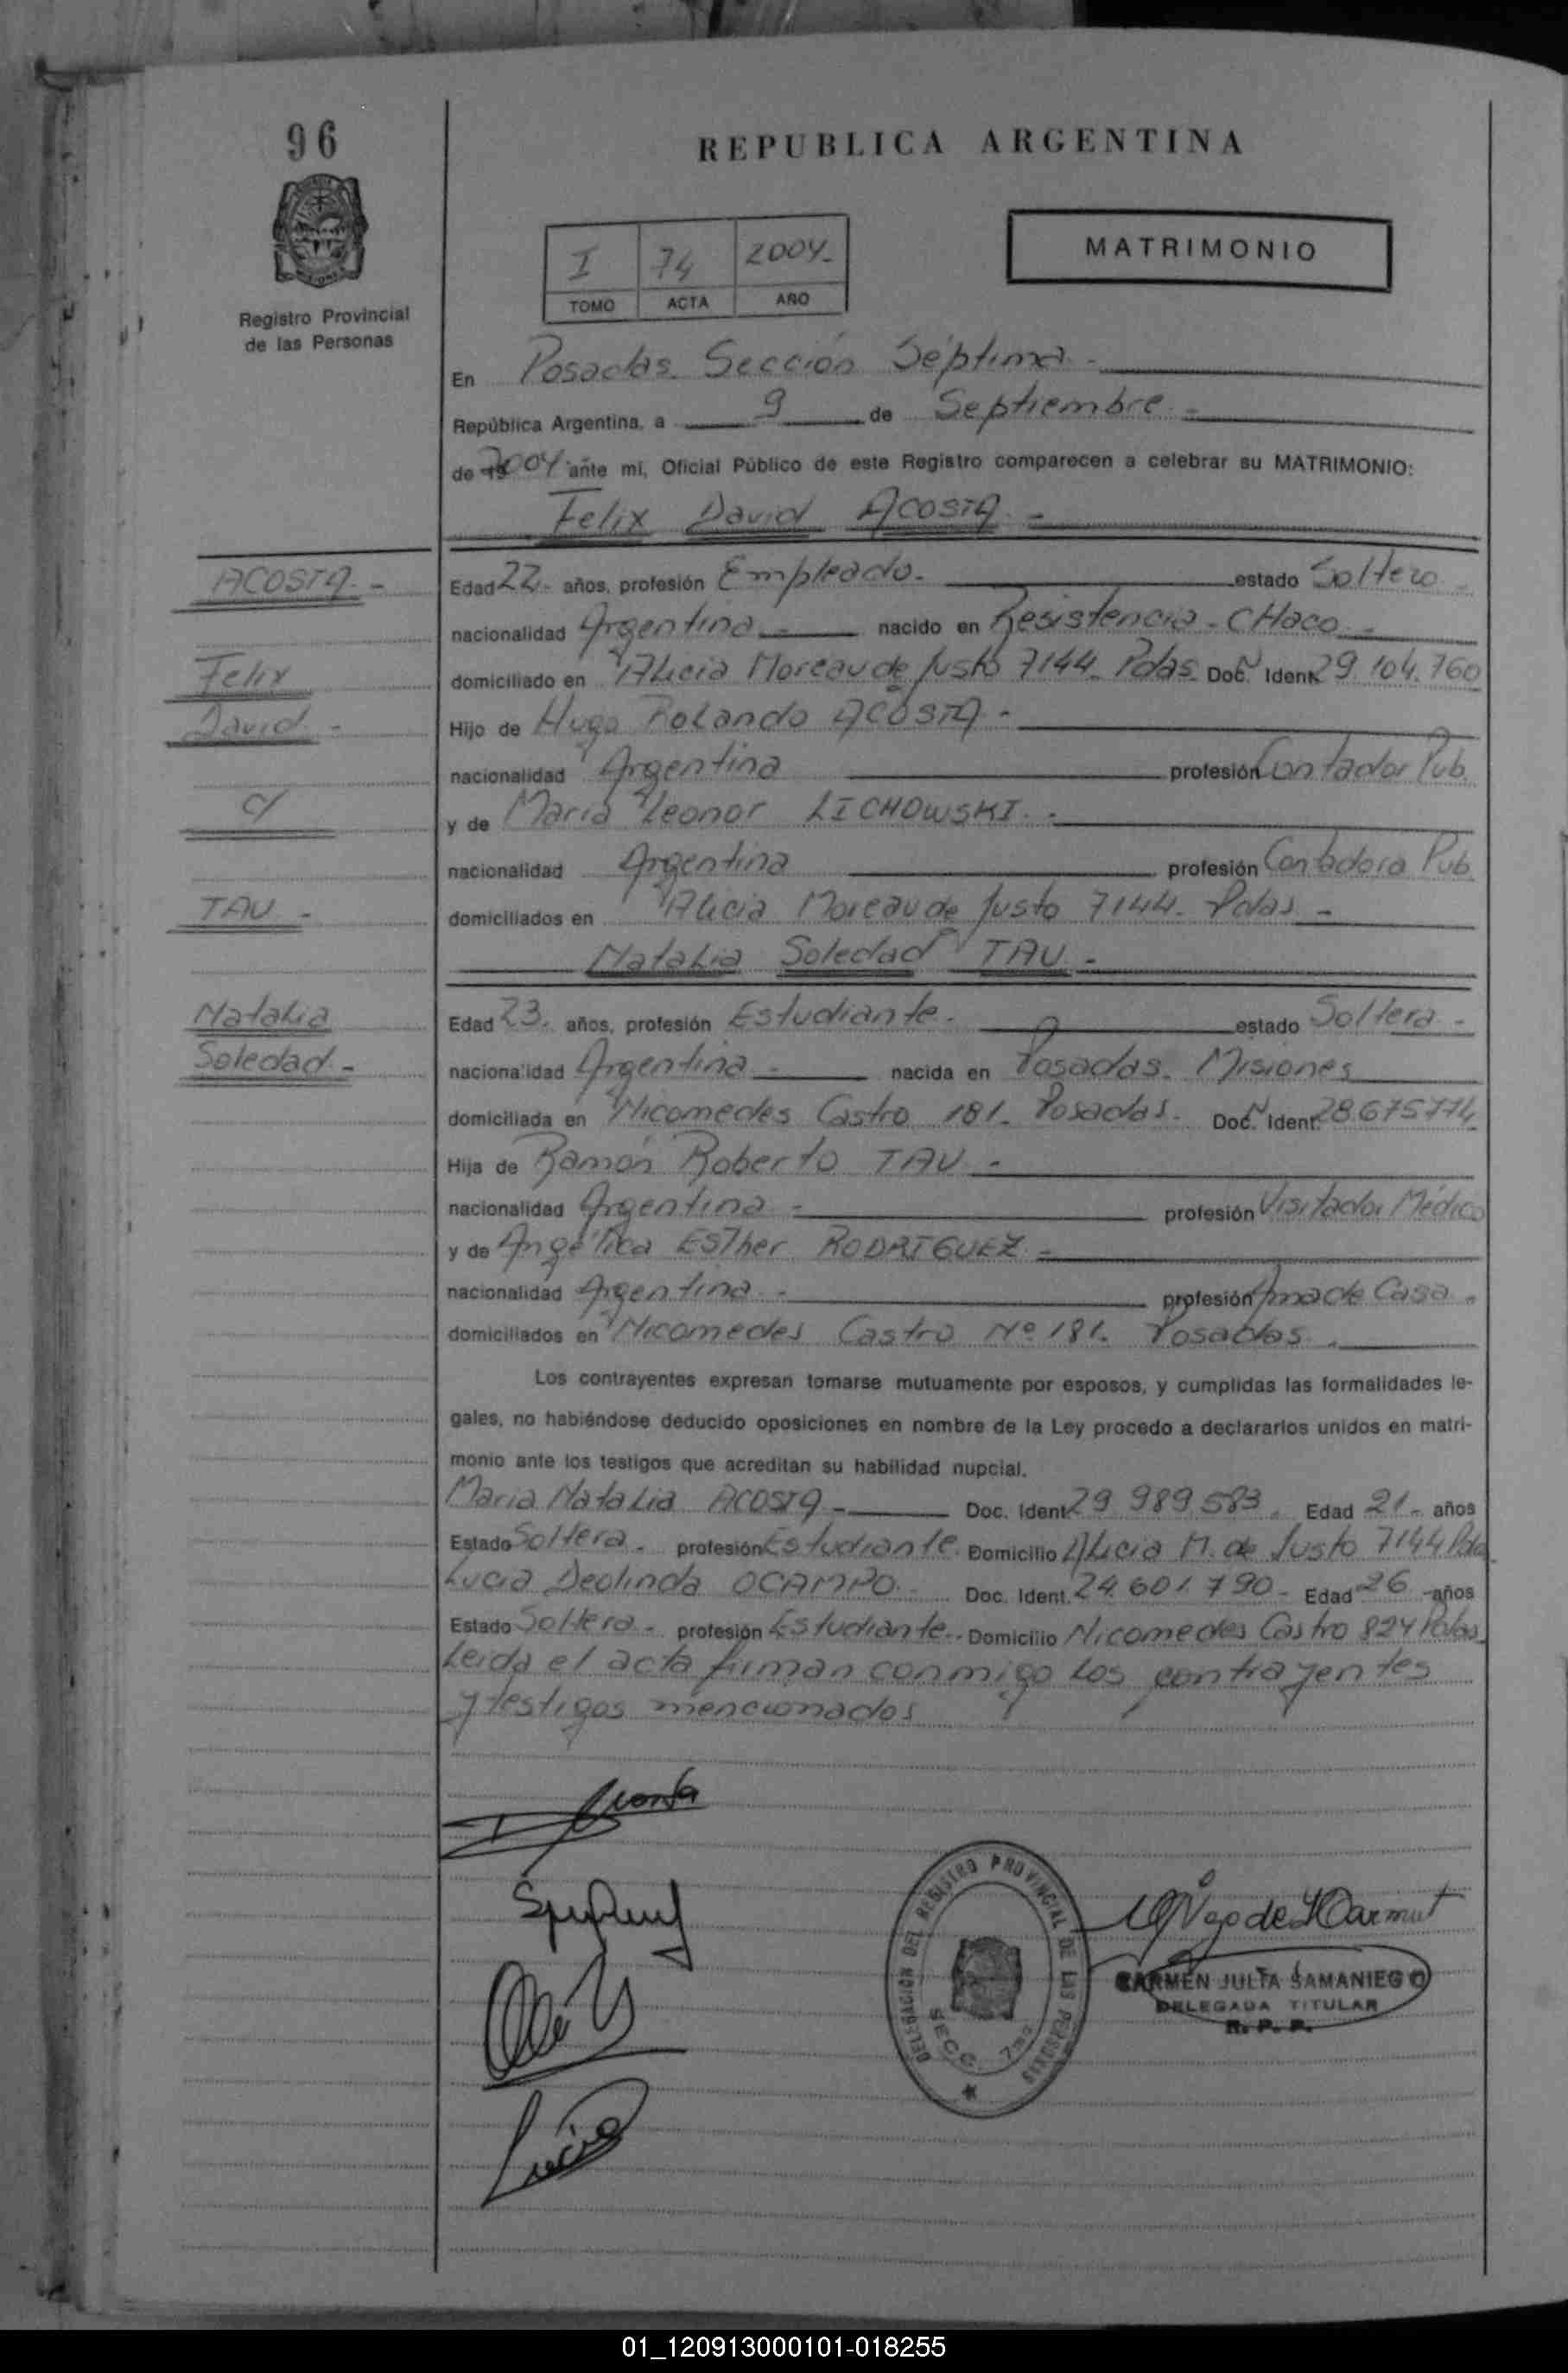 96
REPUBLICA ARGENTINA
Registro Provincial
de las Personas
I 74 2004-
TOMO ACTA AÑO
MATRIMONIO
En Posadas. Sección Séptima -
República Argentina, a 9 de Septiembre -
de 19 2004 ante mi, Oficial Público de este Registro comparecen a celebrar su MATRIMONIO:
Felix David ACOSTA -
ACOSTA -
Felix
David -
c/
TAU -
Natalia
Soledad -
Edad 22- años, profesión Empleado- estado Soltero -
nacionalidad Argentina - nacido en Resistencia - CHaco -
domiciliado en Alicia Moreau de Justo 7144- Pdas Doc. N Ident. 29.104.760
Hijo de Hugo Rolando ACOSTA -
nacionalidad Argentina profesión Contador Pub.
y de Maria Leonor LICHOWSKI -
nacionalidad Argentina profesión Contadora Pub.
domiciliados en Alicia Moreau de Justo 7144- Pdas -
Natalia Soledad TAU -
Edad 23. años, profesión Estudiante - estado Soltera -
nacionalidad Argentina - nacida en Posadas. Misiones
domiciliada en Nicomedes Castro 181- Posadas. Doc. N Ident. 28.675774
Hija de Ramón Roberto TAU -
nacionalidad Argentina - profesión Visitador Médico
y de Angélica ESTher RODRIGUEZ -
nacionalidad Argentina - profesión Ama de Casa -
domiciliados en Nicomedes Castro Nº 181. Posadas.
Los contrayentes expresan tomarse mutuamente por esposos, y cumplidas las formalidades le-
gales, no habiéndose deducido oposiciones en nombre de la Ley procedo a declararlos unidos en matri-
monio ante los testigos que acreditan su habilidad nupcial.
Maria Natalia ACOSTA - Doc. Ident. 29 989 583. Edad 21- años
Estado Soltera. profesión Estudiante. Domicilio Alicia M. de Justo 7144 Pdas
Lucia Deolinda OCAMPO - Doc. Ident. 24.601.790- Edad 26 años
Estado Soltera - profesión Estudiante.. Domicilio Nicomedes Castro 824 Pdas
Leida el acta firman conmigo los contrayentes
y testigos mencionados
Acosta
Lucía
DELEGACION DEL REGISTRO PROVINCIAL DE LAS PERSONAS
SECC. 7ma
CARMEN JULIA SAMANIEGO
DELEGADA TITULAR
R. P. P.
01_120913000101-018255